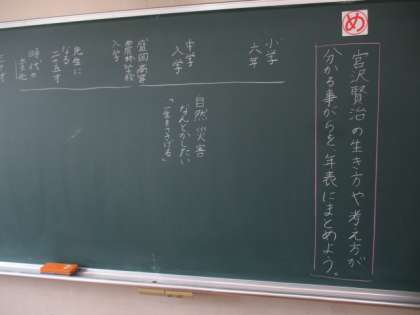 め
宮沢賢治の生き方や考え方が
分かる事がらを年表にまとめよう。
小学
六年
中学
入学
盛岡高等
農林学校
入学
先生に
なる
二十五才
時代の
自然災害
なんとかしたい
「一生をささげる」